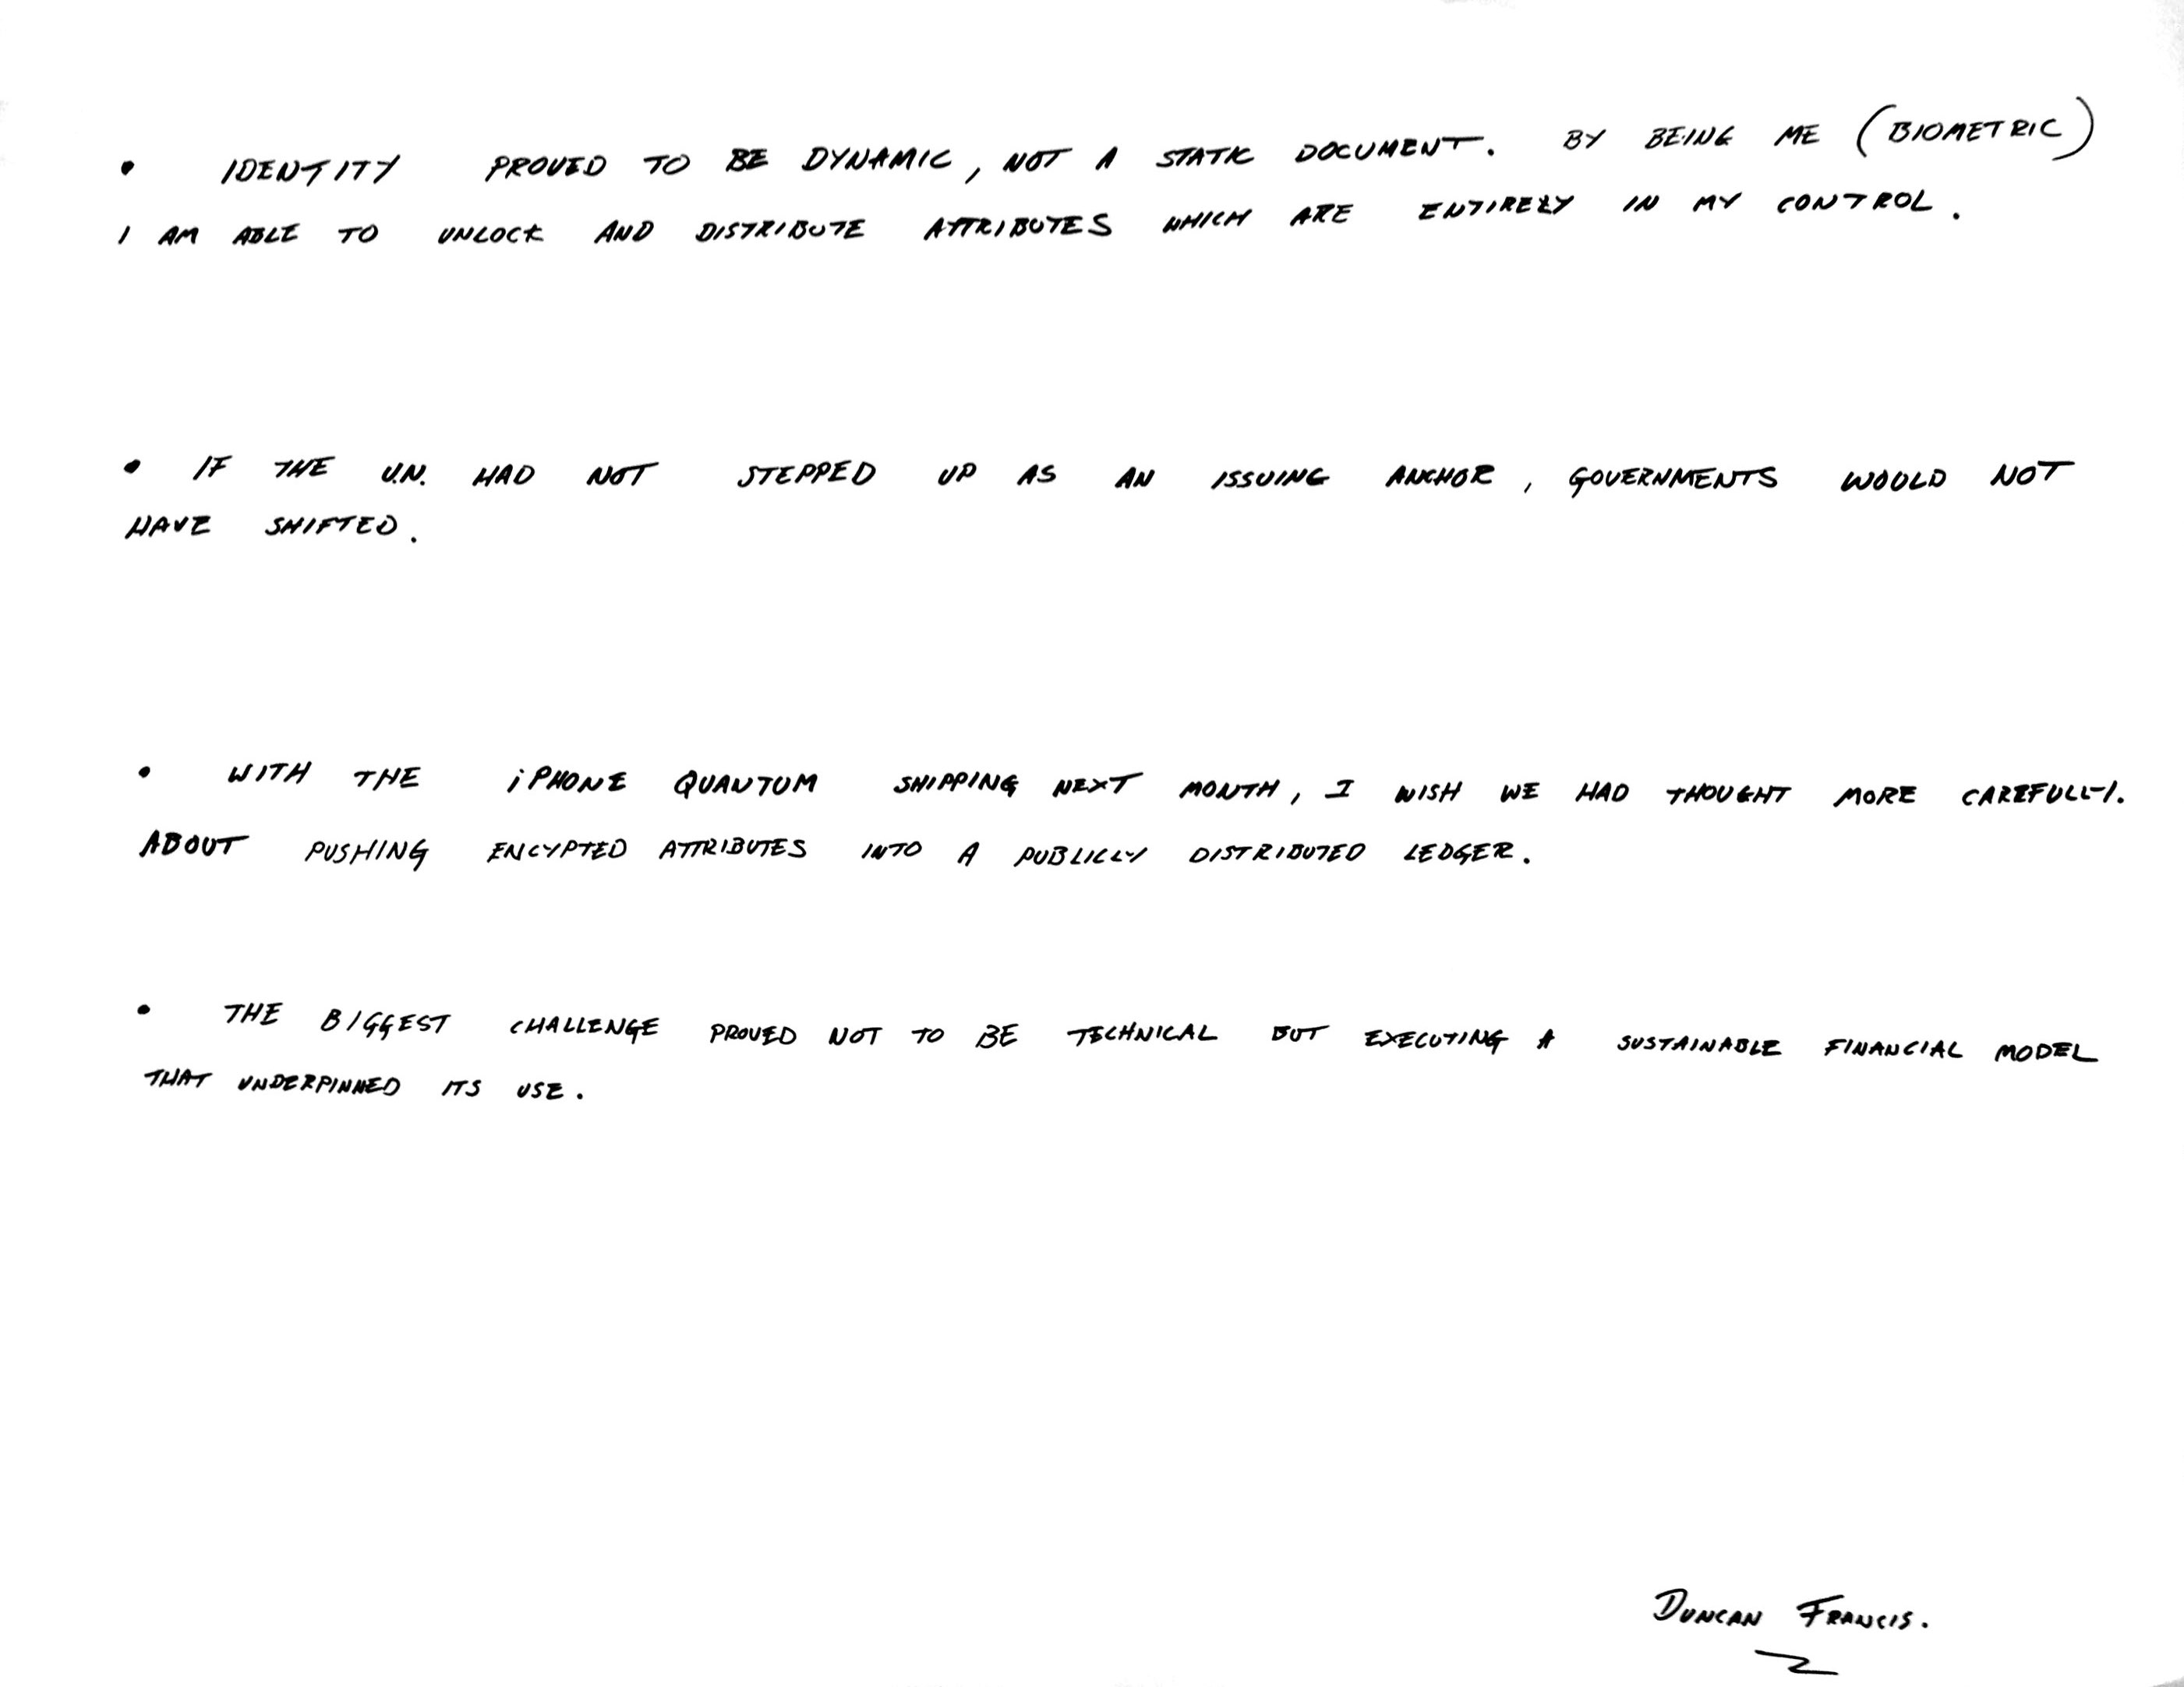 • IDENTITY PROVED TO BE DYNAMIC, NOT A STATIC DOCUMENT. BY BEING ME (BIOMETRIC)
I AM ABLE TO UNLOCK AND DISTRIBUTE ATTRIBUTES WHICH ARE ENTIRELY IN MY CONTROL.
• IF THE U.N. HAD NOT STEPPED UP AS AN ISSUING ANCHOR, GOVERNMENTS WOULD NOT
HAVE SHIFTED.
• WITH THE iPHONE QUANTUM SHIPPING NEXT MONTH, I WISH WE HAD THOUGHT MORE CAREFULLY.
ABOUT PUSHING ENCYPTED ATTRIBUTES INTO A PUBLICLY DISTRIBUTED LEDGER.
• THE BIGGEST CHALLENGE PROVED NOT TO BE TECHNICAL BUT EXECUTING A SUSTAINABLE FINANCIAL MODEL
THAT UNDERPINNED ITS USE.
DUNCAN FRANCIS.